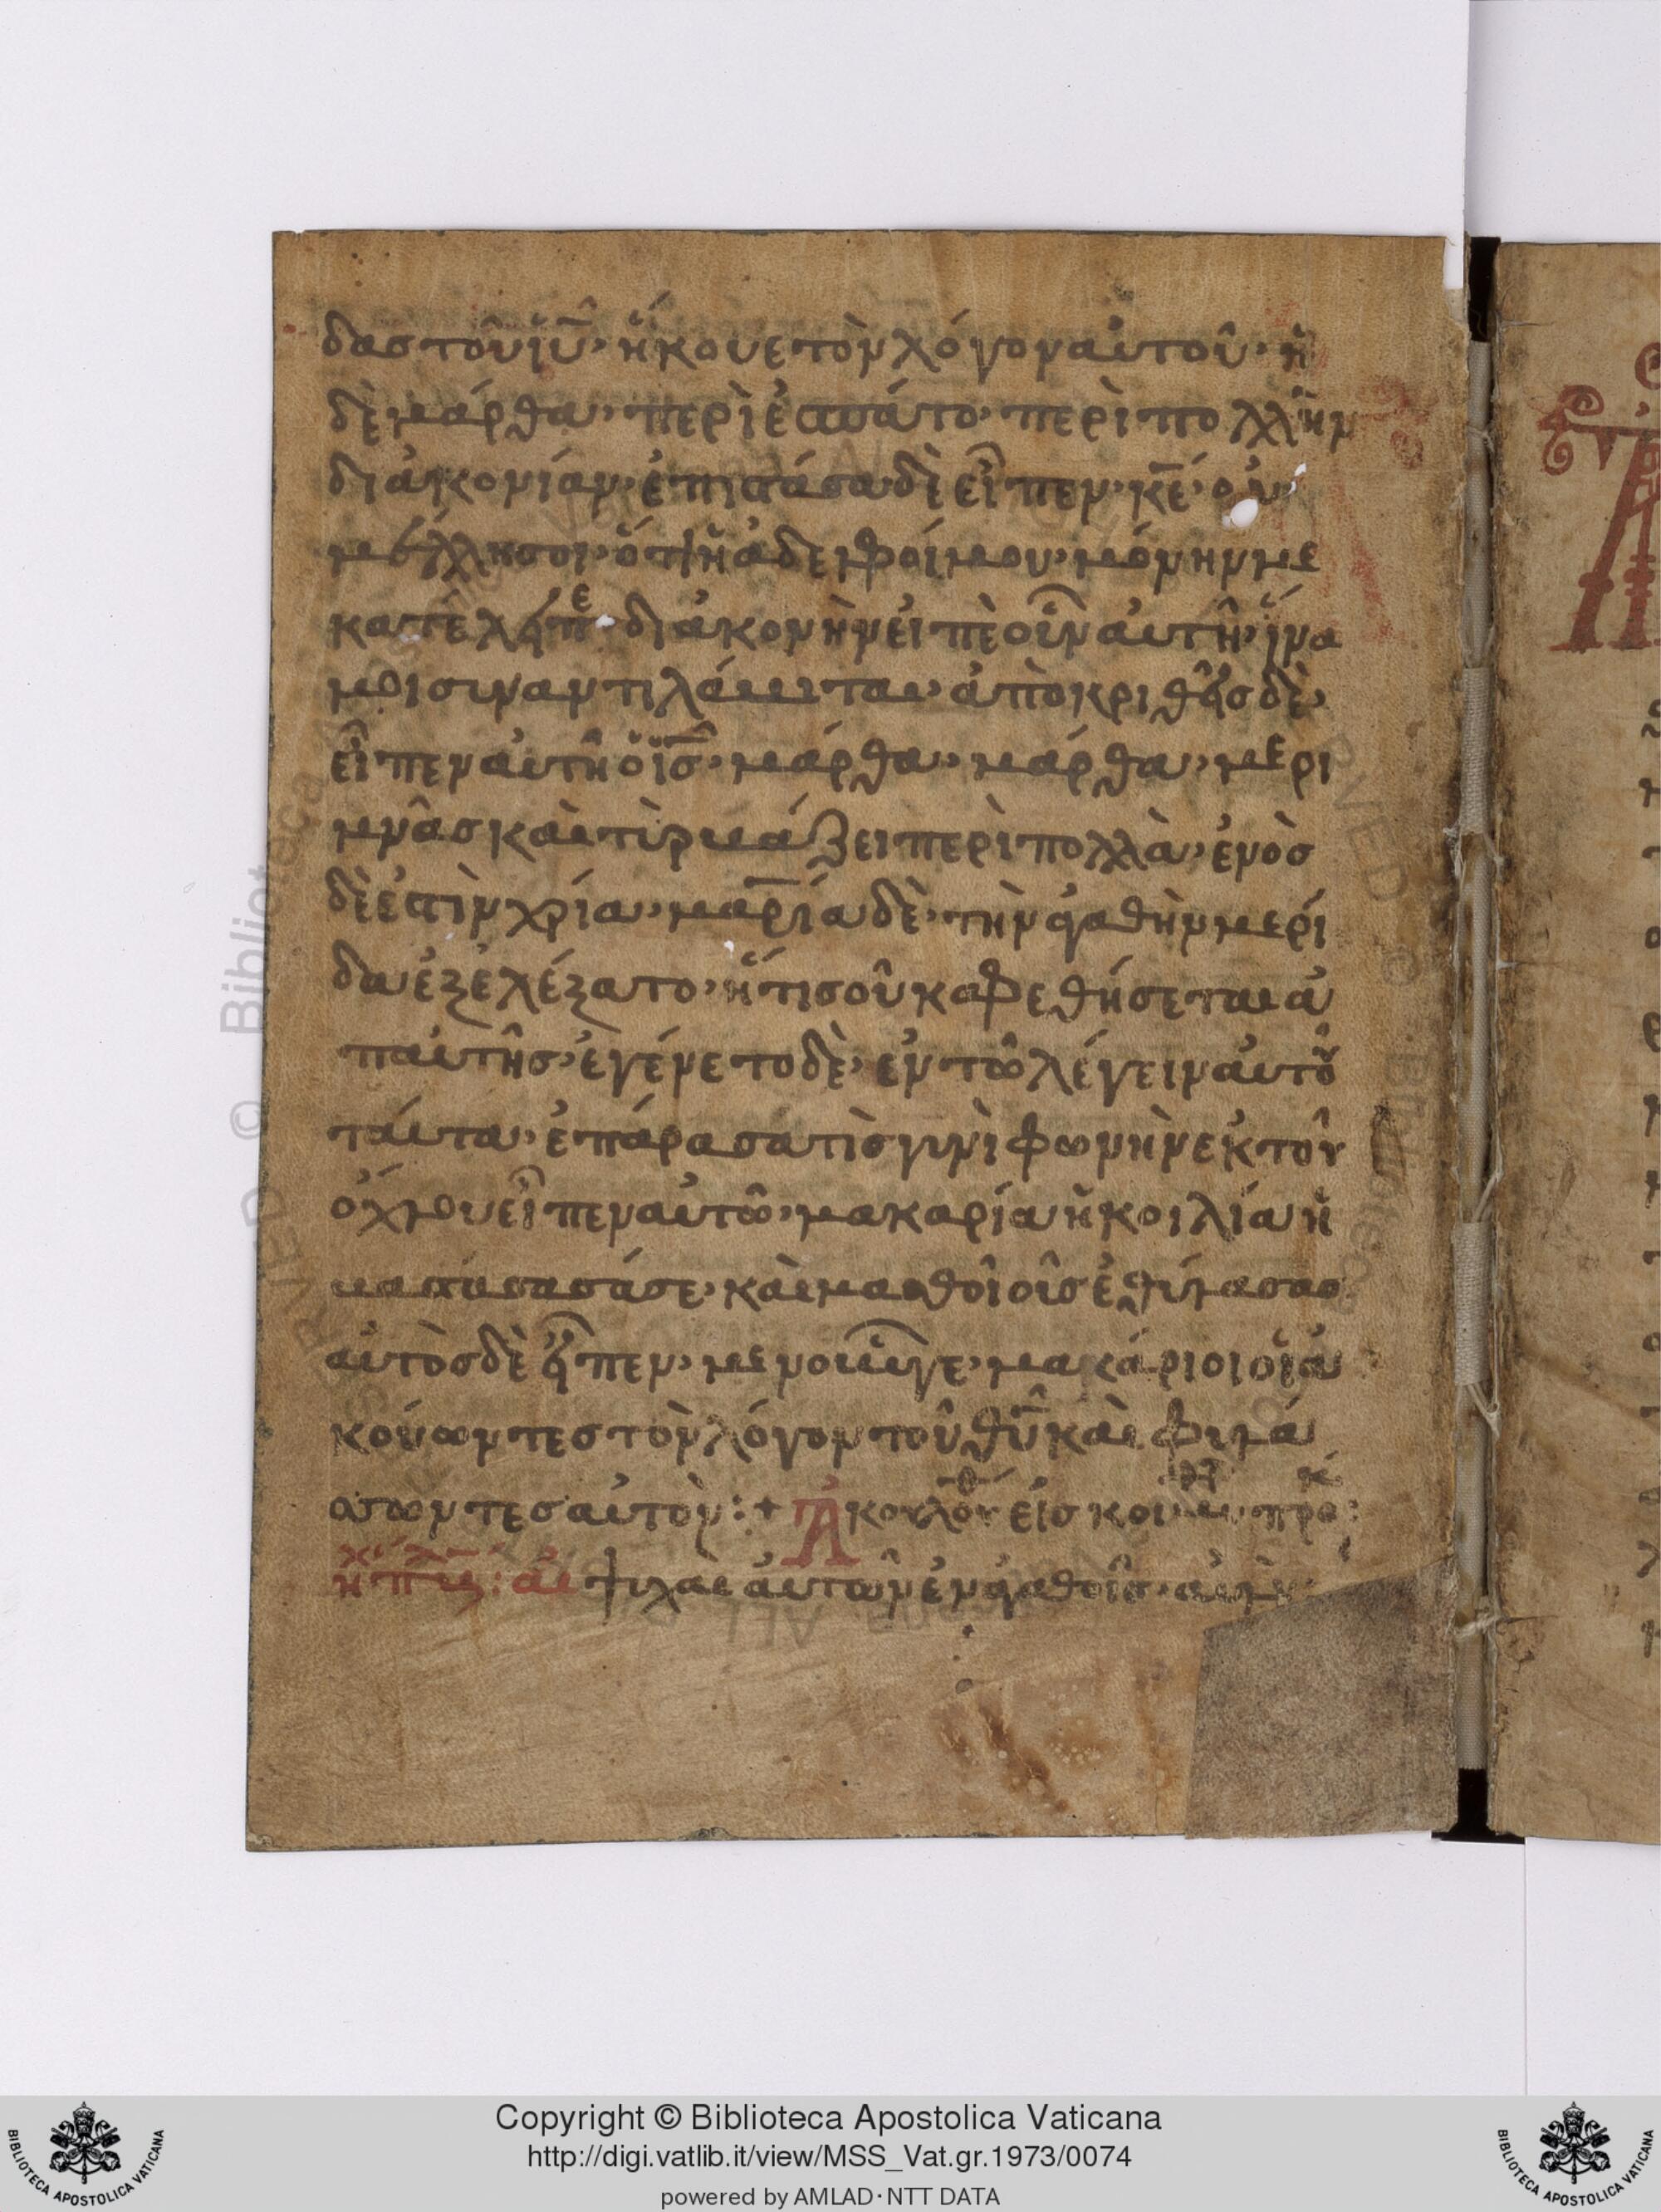 δας τοῦ ἰυ̅· ἤκουε τὸν λόγον αὐτοῦ· ἡ
δὲ μάρθα· περὶ ἐσπάτο· περὶ πολλὴν
διἀκονίαν· ἐπιστάσα δὲ εἶπεν· κε̅· οὐ
μέλλη σοι· ὅτι ἡ ἀδελφοί μου· μόνην με
κατέλειπε διἀκονὴν εἰπὲ οὖν αὐτῆ· ἵνα
μοι συναντιλάβηται· ἀποκριθεὶς δὲ·
εἶπεν αὐτῆ ὁ ἰς̅· μάρθα· μάρθα· μερι
μνᾶς καὶ τὶρβάζει περὶ πολλὰ· ἑνὸς
δὲ ἐστὶν χρία· μαρία δὲ· τὴν ἀγαθὴν μερί
δα ἐξελέξατο· ἥτις οὐκ αφεθήσεται ἀ
π αὐτῆς· ἐγένετο δὲ· ἐν τῶ λέγειν αὐτοῦ
ταύτα· ἐπάρασά τὶς γυνὶ φωνὴν ἐκ τοῦ
ὄχλου εἶπεν αὐτῶ· μακαρία ἡ κοιλία ἡ
βαστάσασάσε· καὶ μασθοὶ οἷς ἐθίλασας
αὐτὸς δὲ εἶπεν· μενοῦνγε· μακάριοι οἱ ἀ
κούωντες τὸν λόγον τοῦ θυ̅ καὶ φυλά
σσωντες αὐτὸν:+ Ἀκολου εἰς κοι
αἱ ψυχαὶ αὐτῶν ἐν ἀγαθοῖς
Copyright © Biblioteca Apostolica Vaticana
http://digi.vatlib.it/view/MSS_Vat.gr.1973/0074
powered by AMLAD·NTT DATA
BIBLIOTECA APOSTOLICA VATICANA
BIBLIOTECA APOSTOLICA VATICANA